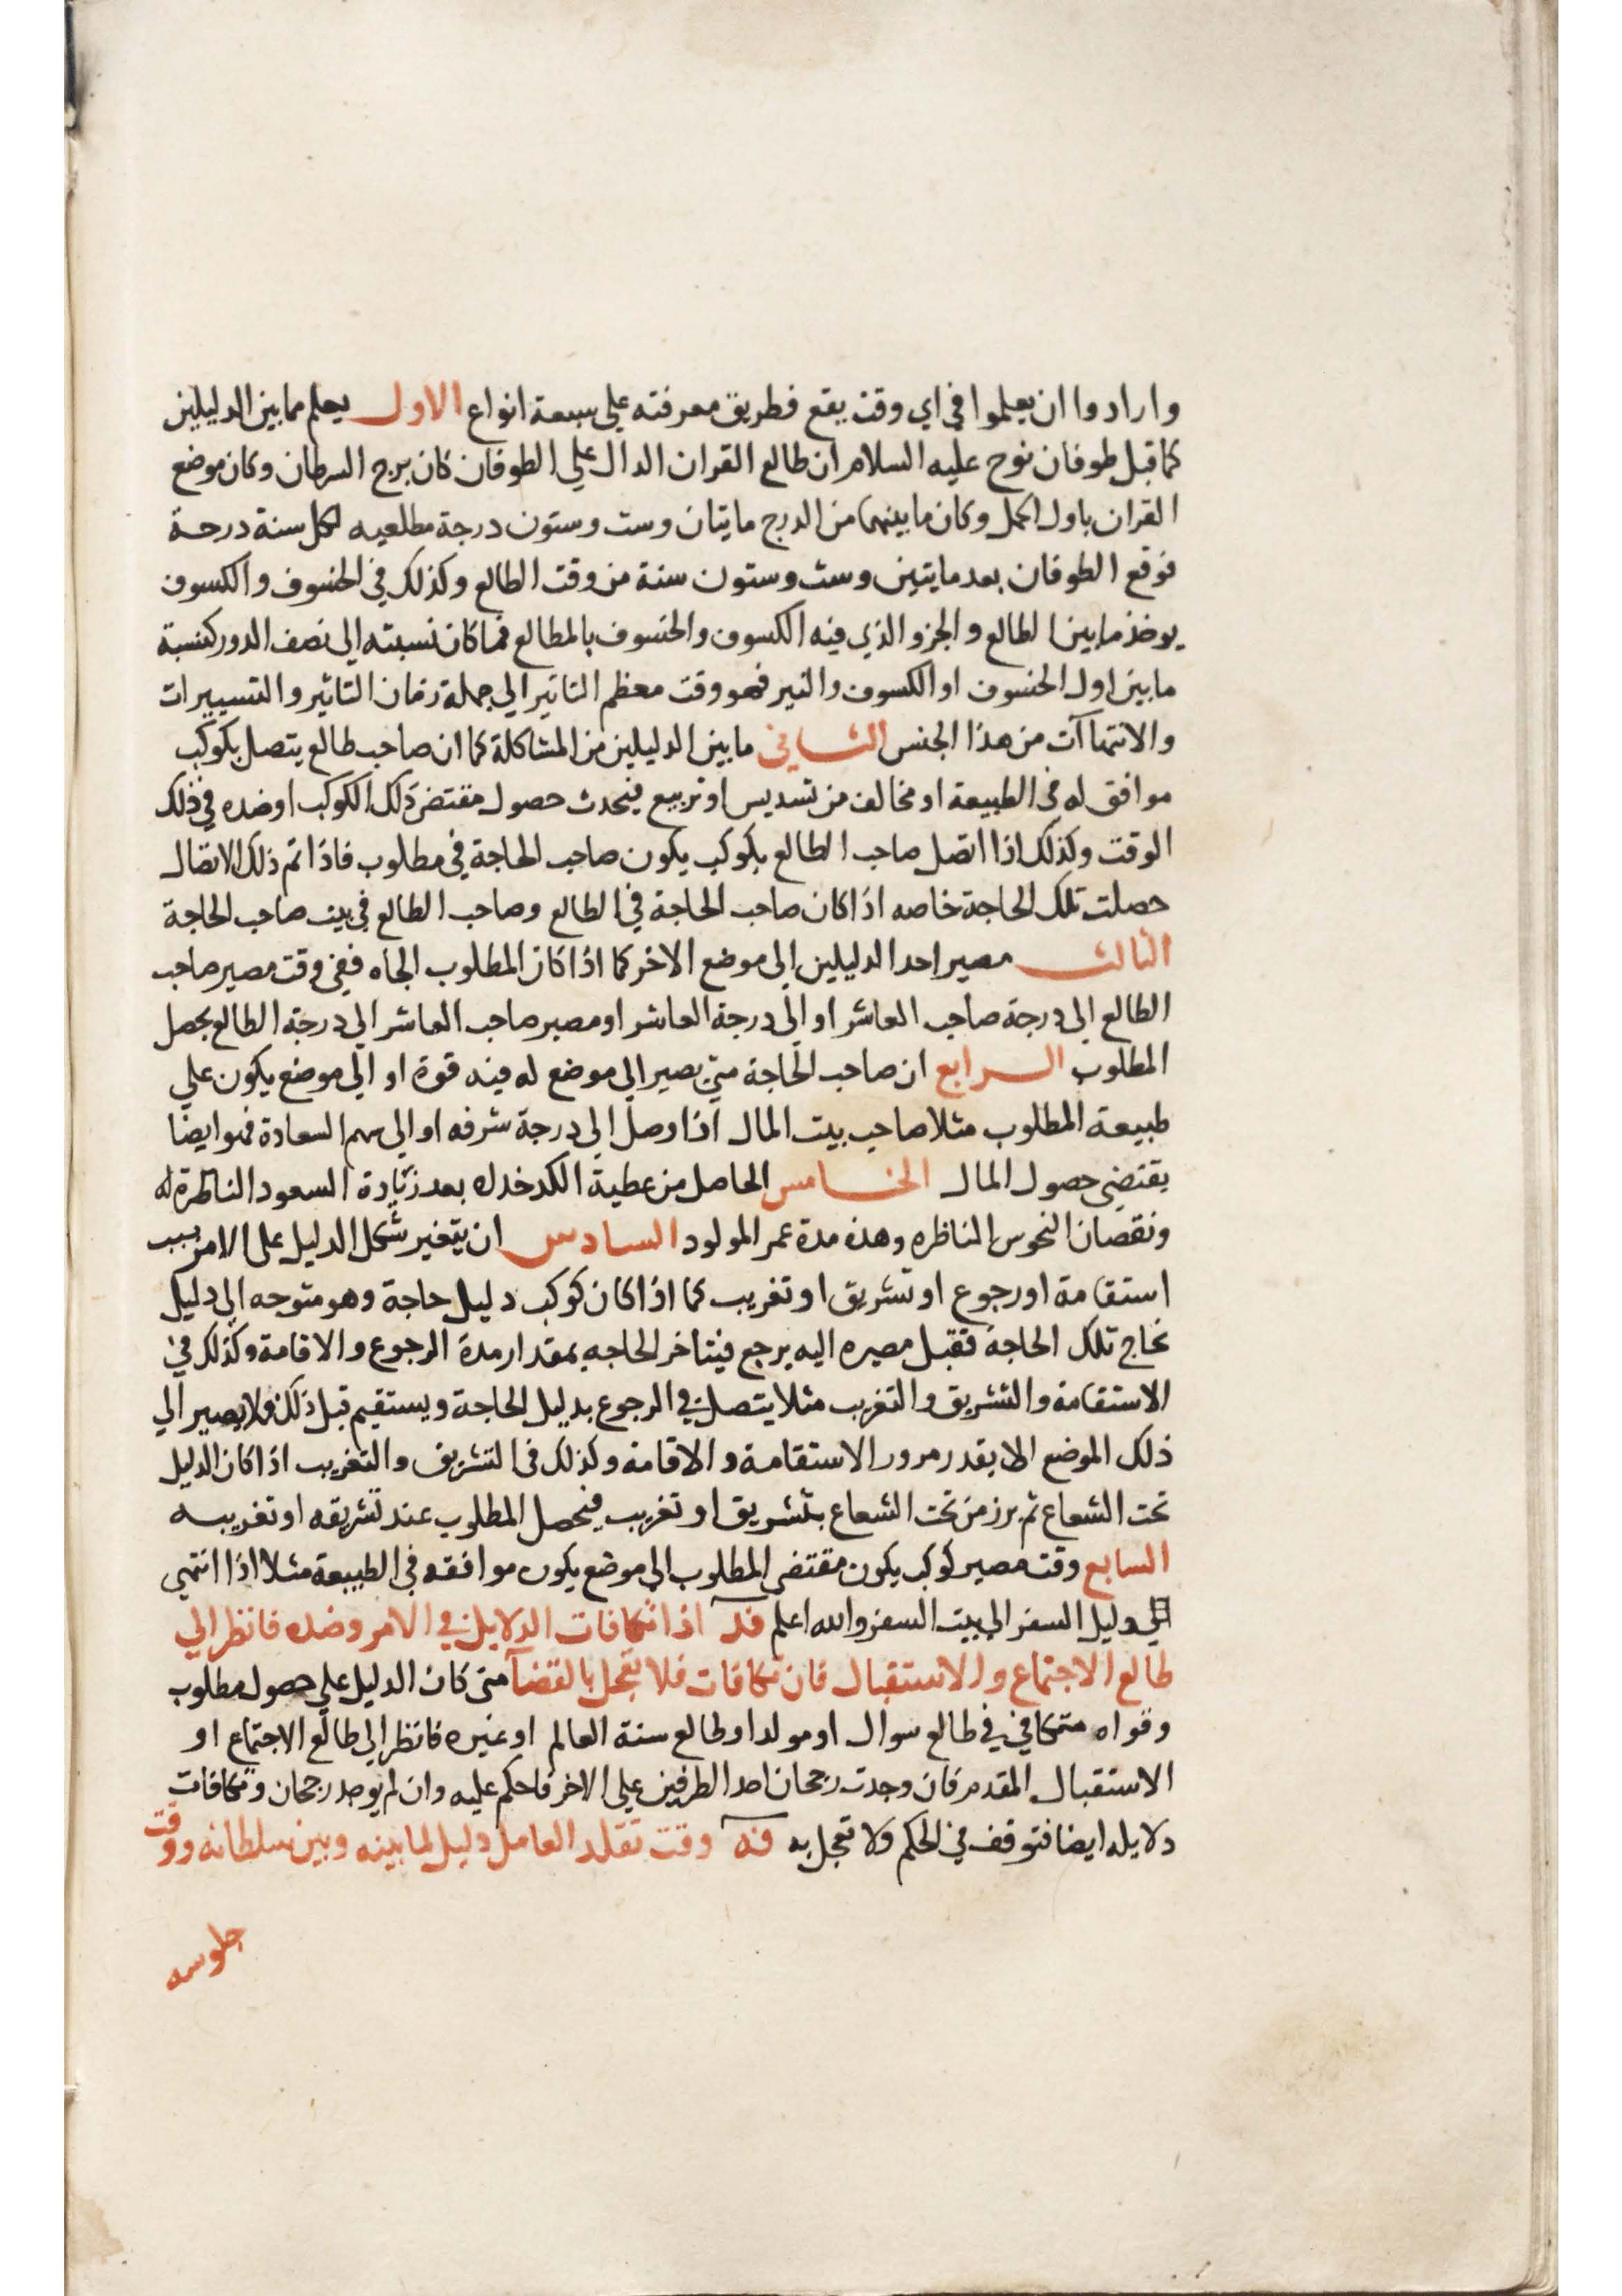 وارادوا ان يعلموا في اي وقت يقع فطريق معرفته علي سبعة انواع الاول يعلم مما بين الدليلين
كما قبل طوفان نوح عليه السلام ان طالع القران الدال علي الطوفان كان برج السرطان وكان موضع
القران باول الحمل وكان ما بينهما من الدرج مايتان وست وستون درجة مطلعيه لكل سنة درجة
فوقع الطوفان بعد مايتين وست وستون سنة من وقت الطالع وكذلك في الخسوف والكسوف
يوخذ ما بين الطالع والجزو الذي فيه الكسوف والخسوف بالمطالع فما كان نسبته الي نصف الدور كنسبة
ما بين اول الخسوف او الكسوف والنير فهو وقت معظم التاثير الي جملة زمان التاثير والتسييرات
والانتهاآت من هذا الجنس الثاني ما بين الدليلين من المشاكلة كما ان صاحب طالع يتصل بكوكب
موافق له في الطبيعة او مخالف من تسديس او تربيع فيحدث حصول مقتضى ذلك الكوكب او ضده في ذلك
الوقت وكذلك اذا اتصل صاحب الطالع بكوكب يكون صاحب الحاجة في مطلوب فاذا تم ذلك الاتصال
حصلت تلك الحاجة خاصه اذا كان صاحب الحاجة في الطالع وصاحب الطالع في بيت صاحب الحاجة
الثالث مصير احد الدليلين الي موضع الاخر كما اذا كان المطلوب الجاه ففي وقت مصير صاحب
الطالع الي درجة صاحب العاشر او الي درجة العاشر او مصير صاحب العاشر الي درجة الطالع يحصل
المطلوب الرابع ان صاحب الحاجة متي يصير الي موضع له فيه قوة او الي موضع يكون علي
طبيعة المطلوب مثلا صاحب بيت المال اذا وصل الي درجة شرفه او الي سهم السعادة فهو ايضا
يقتضي حصول المال الخامس الحاصل من عطية الكدخداه بعد زيادة السعود الناظرة له
ونقصان النحوس الناظره وهذه مدة عمر المولود السادس ان يتغير شكل الدليل على الامر بسبب
استقامة او رجوع او تشريق او تغريب كما اذا كان كوكب دليل حاجة وهو متوجه الي دليل
نجاح تلك الحاجة فقبل مصيره اليه يرجع فيتاخر الحاجه بمقدار مدة الرجوع والاقامة وكذلك في
الاستقامة والتشريق والتغرب مثلا يتصل في الرجوع بدليل الحاجة ويستقيم قبل ذلك فلا يصير الي
ذلك الموضع الا بقدر مرور الاستقامة والاقامة وكذلك في التشريق والتغريب اذا كان الدليل
تحت الشعاع ثم برز من تحت الشعاع بتشريق او تغريب فيحصل المطلوب عند تشريقه او تغريبه
السابع وقت مصير كوكب يكون مقتضى المطلوب الي موضع يكون موافقه في الطبيعة مثلا اذا انتهي
دليل السفر الي بيت السفر والله اعلم اذا تكافات الدلايل في الامر وضده فانظر الي
طالع الاجتماع والاستقبال فان تكافات فلا تعجل بالقضآ متى كان الدليل علي حصول مطلوب
وقواه متكافي في طالع سوال او مولد او طالع سنة العالم او غيره فانظر الي طالع الاجتماع او
الاستقبال المقدم فان وجدت رجحان احد الطرفين علي الاخر فاحكم عليه وان لم يوجد رجحان وتكافات
دلايله ايضا فتوقف في الحكم ولا تعجل به وقت تقلد العامل دليل لما بينه وبين سلطانه ووقت
جلوسه